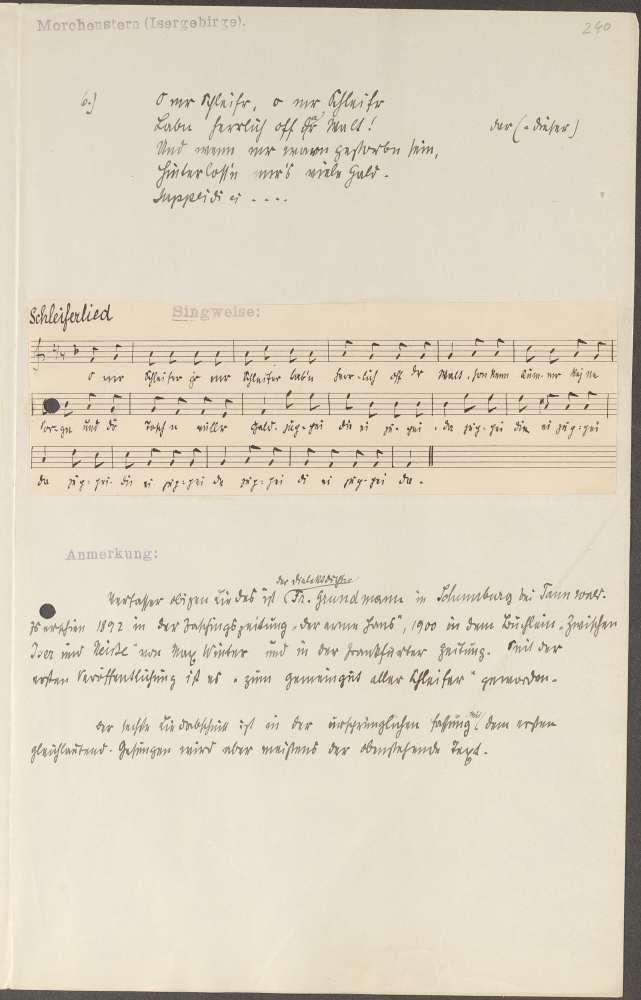 Morchenstern (Isergebirge).
240
6.) O mr Schleifr, o mr Schleifr
Labn herrlich off dr Walt! dar (= dieser)
Und wenn mr warn gestorbn sein,
Hinterlossn mr's viele Gald.
Juppeidi ei ....
Schleiferlied Singweise:
O mr Schleifer jo mr Schleifer lab'n herr-lich off dr Walt, hon kenn Kum-mr kej ne
Sor-gn und de Tosch'n vullr Gald. jup-pei di ei
da jup-pei-di ei jup-pei da jup-pei di ei jup-pei da.
Anmerkung:
der Dialektdichter
Verfasser obigen Liedes ist Fr. Grundmann in Schumburg bei Tannwald.
Es erschien 1892 in der Faschingszeitung "der arme Hans", 1900 in dem Büchlein "Zwischen
Iser und Neiße" von Max Winter und in der Frankfurter Zeitung. Seit der
ersten Veröffentlichung ist es "zum Gemeingut aller Schleifer" geworden.
Der sechste Liedabschnitt ist in der ursprünglichen Fassung mit dem ersten
gleichlautend. Gesungen wird aber meistens der obenstehende Text.